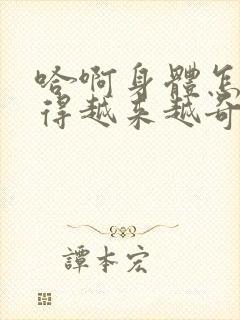 哈啊身體怎
得越来越奇
譚本宏